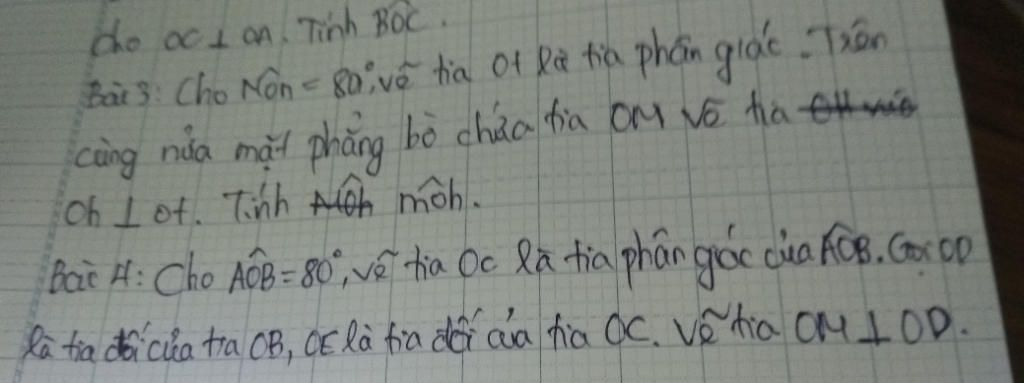 cho OC ⊥ OA. Tính BÔC.
Bài 3: Cho NÔn = 80°, vẽ tia Ot là tia phân giác. Trên
cùng nửa mặt phẳng bờ chứa tia OM vẽ tia
Oh ⊥ Ot. Tính mÔh.
Bài 4: Cho AÔB = 80°, vẽ tia Oc là tia phân giác của AÔB. Gọi OD
là tia đối của tia OB, OE là tia đối của tia OC. Vẽ tia OM ⊥ OD.